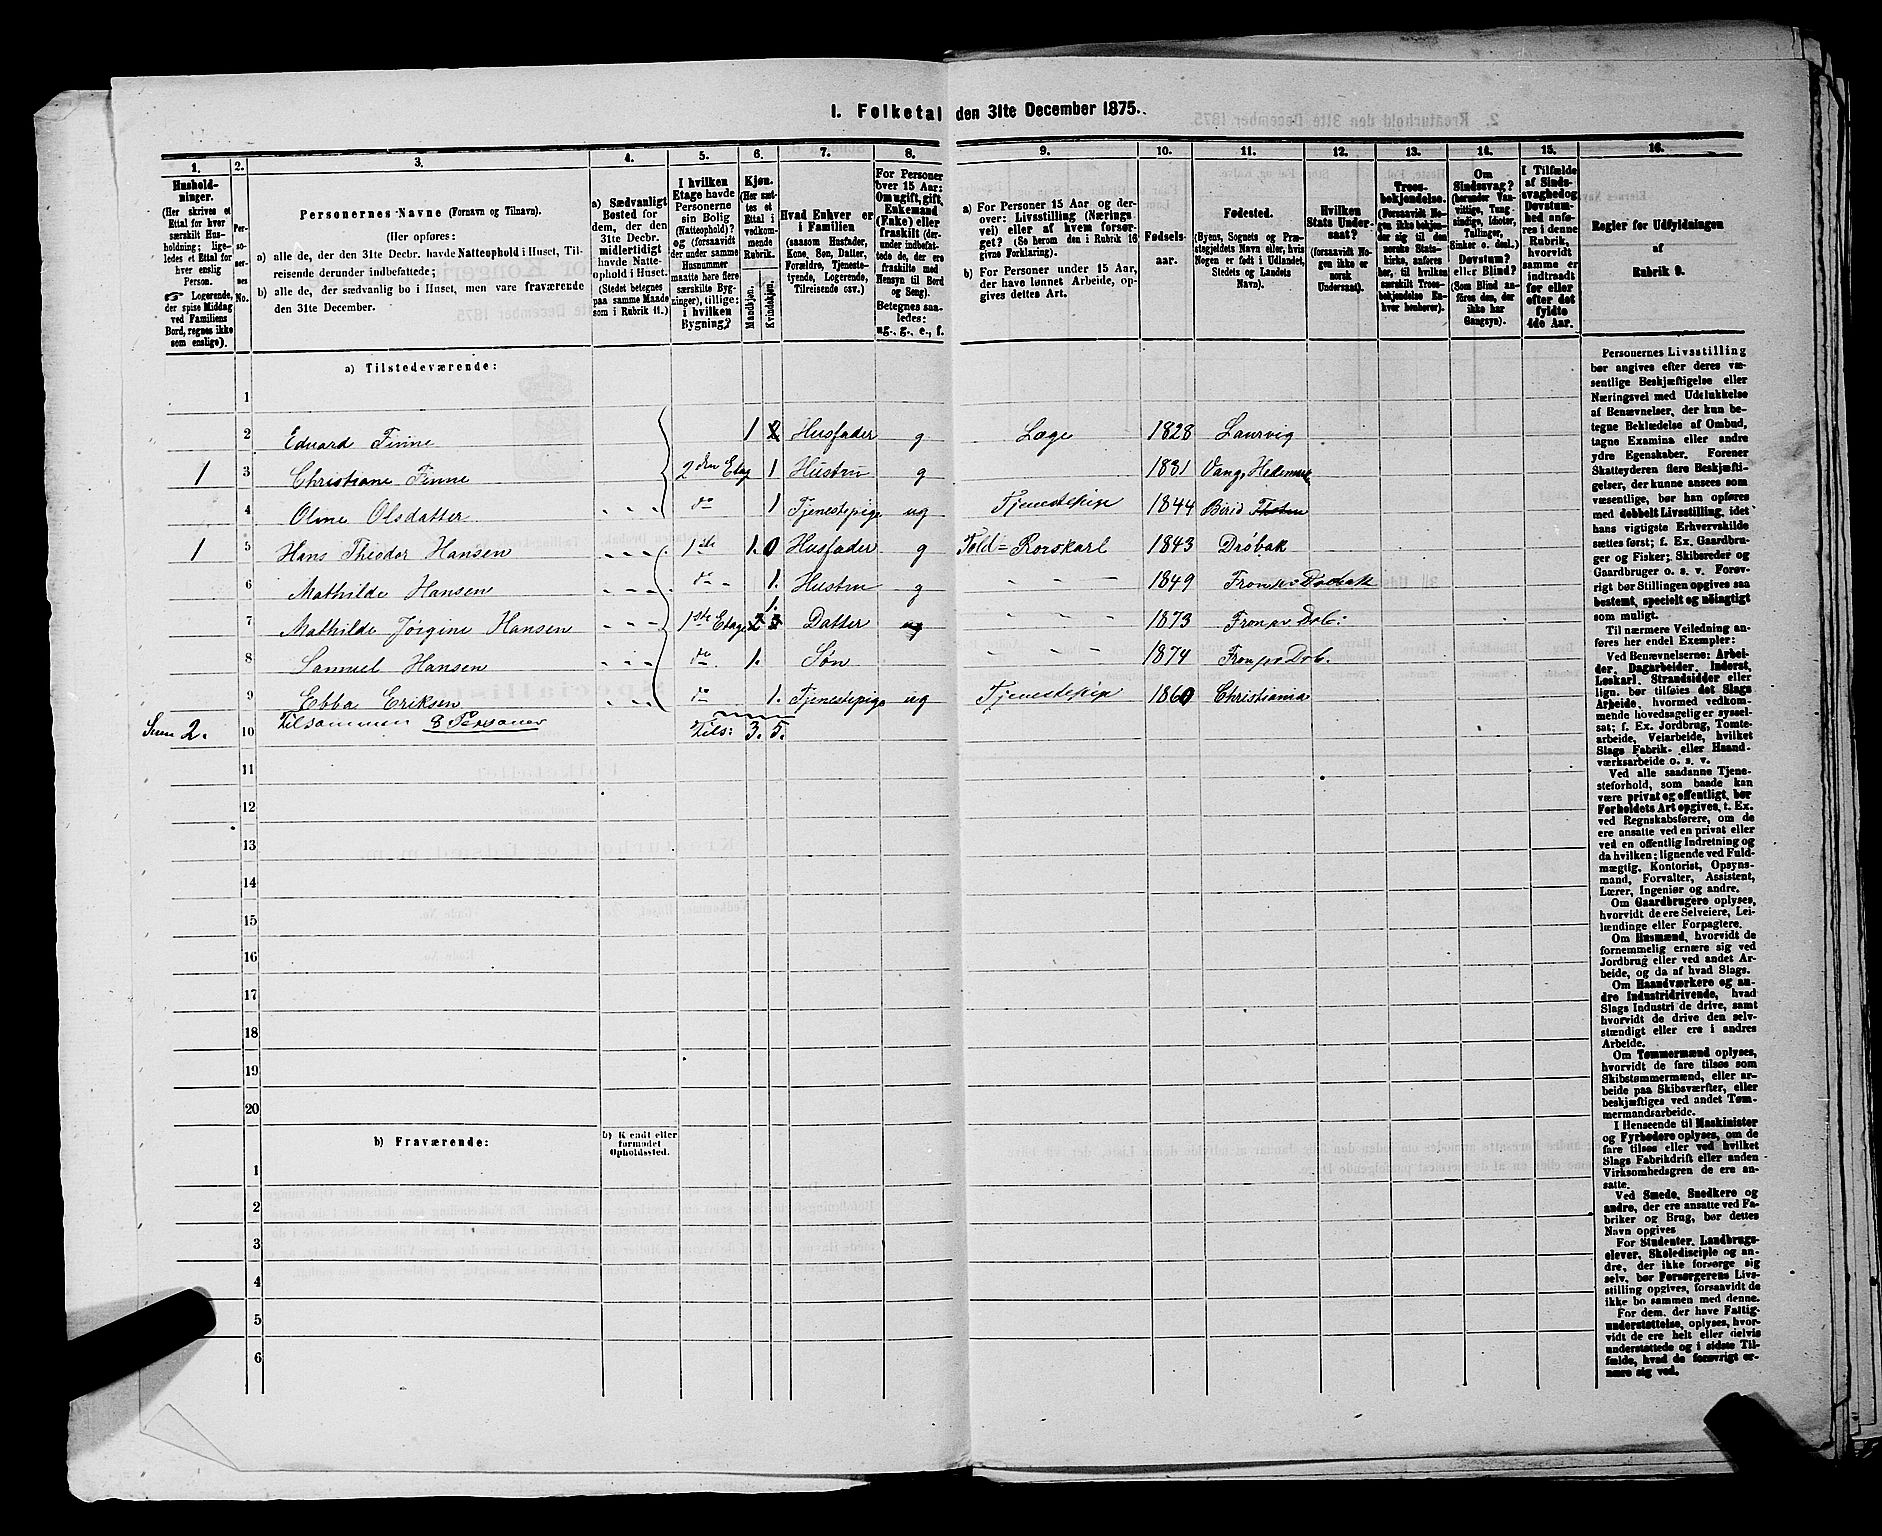 1. Folketal den 31te December 1875.
1. 2. 3. 4. 5. 6. 7. 8. 9. 10. 11. 12. 13. 14. 15. 16.
Hushold-
ninger.
(Her skrives et
Ettal for hver
særskilt Hus-
holdning; lige-
ledes et Ettal for
hver enslig
Person.
☞ Logerende,
der spise Middag
ved Familiens
Bord, regnes ikke
som enslige).
Per-
soner-
nes
No.
Personernes Navne (Fornavn og Tilnavn).
(Her opføres:
a) alle de, der den 31te Decbr. havde Natteophold i Huset, Til-
reisende derunder indbefattede;
b) alle de, der sædvanlig bo i Huset, men vare fraværende
den 31te December.
a) Sædvanligt
Bosted for
dem, der den
31te Decbr.
midlertidigt
havde Natte-
ophold i Huset.
(Stedet betegnes
paa samme Maade
som i Rubrik 11.)
I hvilken
Etage havde
Personerne
sin Bolig
(Natteophold)?
og (forsaavidt
der under samme
Husnummer
maatte høre flere
særskilte Byg-
ninger), tillige:
i hvilken
Bygning?
Kjøn.
(Her sæt-
tes et
Ettal i
vedkom-
mende
Rubrik.
Mandkjøn.
Kvindekjøn.
Hvad Enhver er
i Familien
(saasom Husfader,
Kone, Søn, Datter,
Forældre, Tjeneste-
tyende, Logerende,
Tilreisende osv.)
For Personer
over 15 Aar:
Om ugift, gift,
Enkemand
(Enke) eller
fraskilt (der-
under indbefat-
tede de, der ere
fraskilte med
Hensyn til Bord
og Seng).
Betegnes saa-
ledes:
ug., g., e., f.
a) For Personer 15 Aar og der-
over: Livsstilling (Nærings-
vei) eller af hvem forsør-
get? (Se herom den i Rubrik 16
givne Forklaring).
b) For Personer under 15 Aar,
der have lønnet Arbeide, op-
gives dettes Art.
Fødsels-
aar.
Fødested.
(Byens, Sognets og Præ-
stegjeldets Navn eller, hvis
Nogen er født i Udlandet,
Stedets og Landets
Navn).
Hvilken
Stats Under-
saat?
(forsaavidt No-
gen ikke er
norsk
Undersaat).
Troes-
bekjendelse.
(Forsaavidt No-
gen ikke beken-
der sig til den
norske Stats-
kirke, anføres
her, til hvilken
særskilt Troes-
bekjendelse En-
hver henhører).
Om
Sindssvag?
(herunder Van-
vittige, Tung-
sindige, Idioter,
Tullinger,
Sinker o. desl.)
Døvstum?
eller Blind?
(Som Blind an-
føres den, der
ikke har
Gangsyn).
I Tilfælde
af Sinds-
svaghed og
Døvstum-
hed anfø-
res i denne
Rubrik,
hvorvidt
samme er
indtraadt
før eller
efter det
fyldte
4de Aar.
Regler for Udfyldningen
af
Rubrik 9.
a) Tilstedeværende:
1
2 Eduard Finne 1 Husfader g Læge 1828 Laurvig
1 3 Christiane Finne 2den Etag 1 Hustru g 1831 Vang, Hedemark
4 Oline Olsdatter - - - do 1 Tjenestepige ug Tjenestepige 1844 Birid
1 5 Hans Theodor Hansen - - - 1ste 1. 0 Husfader g Told = Rorskarl 1843 Drøbak
6 Mathilde Hansen - - - do - 1. Hustru g - - - 1849
7 Mathilde Jørgine Hansen - - - 1ste Etage 1. Datter ug - - - 1873
8 Samuel Hansen - - - do 1. Søn - - - 1874
9 Ebba Eriksen do 1. Tjenestepige ug Tjenestepige 1860 Christiania
Sum 2. 10 Tilsammen 8 Personer Tils: 3. 5.
11
12
13
14
15
16
17
18
19
20
b) Fraværende:
b) Kjendt eller
formodet
Opholdssted.
1
2
3
4
5
6
Personernes Livsstilling
bør angives efter deres væ-
sentlige Beskjæftigelse eller
Næringsvei med Udelukkelse
af Benævnelser, der kun be-
tegne Beklædelse af Ombud,
tagne Examina eller andre
ydre Egenskaber. Forener
Skatteyderen flere Beskjæfti-
gelser, der kunne ansees som
væsentlige, bør han opføres
med dobbelt Livsstilling, idet
hans vigtigste Erhvervskilde
sættes først; f. Ex. Gaardbru-
ger og Fisker; Skibsreder og
Gaardbruger o. s. v. Forøv-
rigt bør Stillingen opgives saa
bestemt, specielt og nøiagtigt
som muligt.
Til nærmere Veiledning an-
føres her endel Exempler:
Ved Benævnelserne: Arbei-
der, Dagarbeider, Inderst,
Løskarl, Strandsidder eller
lign. bør tilføies det Slags
Arbeide, hvormed vedkom-
mende hovedsagelig er syssel-
sat; f. Ex. Jordbrug, Tomte-
arbeide, Veiarbeide, hvilket
Slags Fabrik- eller Haand-
værksarbeide o. s. v.
Ved alle saadanne Tjene-
steforhold, som baade kan
være privat og offentligt, bør
Forholdets Art opgives, t. Ex.
ved Regnskabsførere, om de
ere ansatte ved en privat eller
ved en offentlig Indretning og
da hvilken; lignende ved Fuld-
mægtig, Kontorist, Opsyns-
mand, Forvalter, Assistent,
Lærer, Ingeniør og andre.
Om Gaardbrugere oplyses,
hvorvidt de ere Selveiere, Lei-
lændinge eller Forpagtere.
Om Husmænd, hvorvidt de
fornemmelig ernære sig ved
Jordbrug eller ved andet Ar-
beide, og da af hvad Slags.
Om Haandværkere og an-
dre Industridrivende, hvad
Slags Industri de drive, samt
hvorvidt de drive den selv-
stændigt eller ere i andres
Arbeide.
Om Tømmermænd oplyses,
hvorvidt de fare tilsøs som
Skibstømmermænd, eller ar-
beide paa Skibsværfter, eller
beskjæftiges ved andet Tøm-
mermandsarbeide.
I Henseende til Maskinister
og Fyrbødere oplyses, om de
fare tilsøs eller ved hvilket
Slags Fabrikdrift eller anden
Virksomhedsgren de ere an-
satte.
Ved Smede, Snedkere og
andre, der ere ansatte ved Fa-
briker og Brug, bør dettes
Navn opgives
For Studenter, Landbrugs-
elever, Skoledisciple og an-
dre, der ikke forsørge sig
selv, bør Forsørgerens Livs-
stilling opgives, forsaavidt de
ikke bo sammen med denne.
For dem, der have Fattig-
understøttelse, oplyses, hvor-
vidt de ere helt eller delvis
understøttede og i sidste Til-
fælde, hvad de forøvrigt er-
nære sig ved.